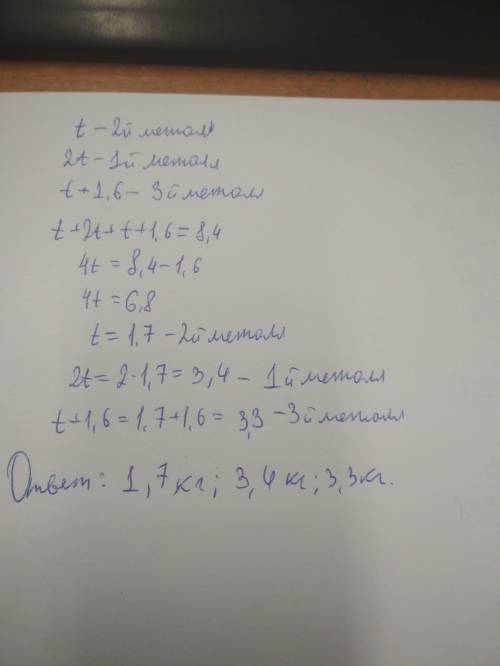 t – 2й металл
2t – 1й металл
t + 1,6 – 3й металл
t + 2t + t + 1,6 = 8,4
4t = 8,4 - 1,6
4t = 6,8
t = 1,7 – 2й металл
2t = 2·1,7 = 3,4 – 1й металл
t + 1,6 = 1,7 + 1,6 = 3,3 – 3й металл
Ответ: 1,7 кг; 3,4 кг; 3,3 кг.